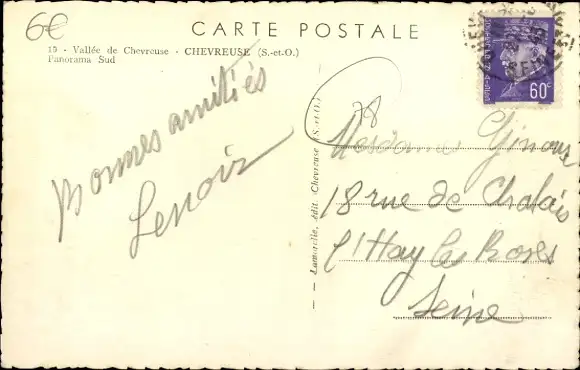 6€
CARTE POSTALE
15 - Vallée de Chevreuse - CHEVREUSE (S.-et-O.)
Panorama Sud
60c
78
Bonnes amitiés
Lenoir
Lamorelle, Édit. Chevreuse (S.-et-O.)
Mesdames Ginoux
18 rue de Chalais
l'Hay les Roses
Seine